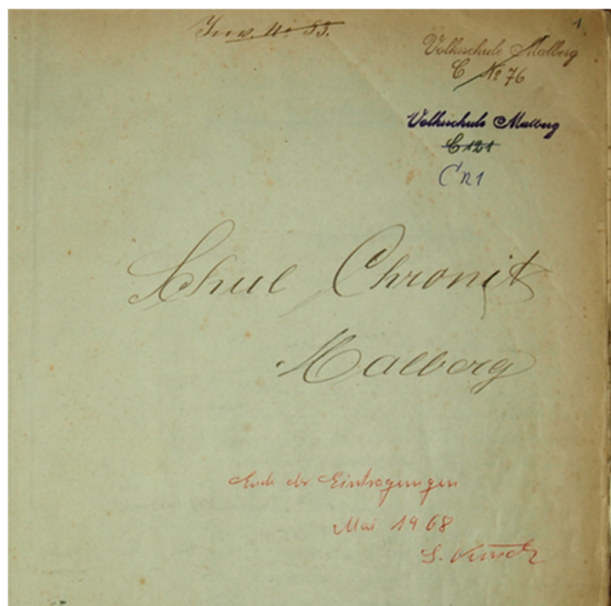 1.
Inv. No 55.
Volksschule Malberg
C No 76
Volksschule Malberg
C 121
C n1
Schul Chronik
Malberg
Ende der Eintragungen
Mai 1968